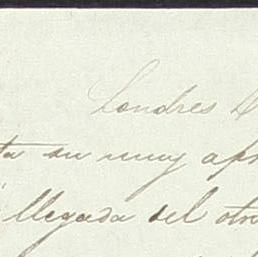 Londres
ta su muy apr
llegada del otro